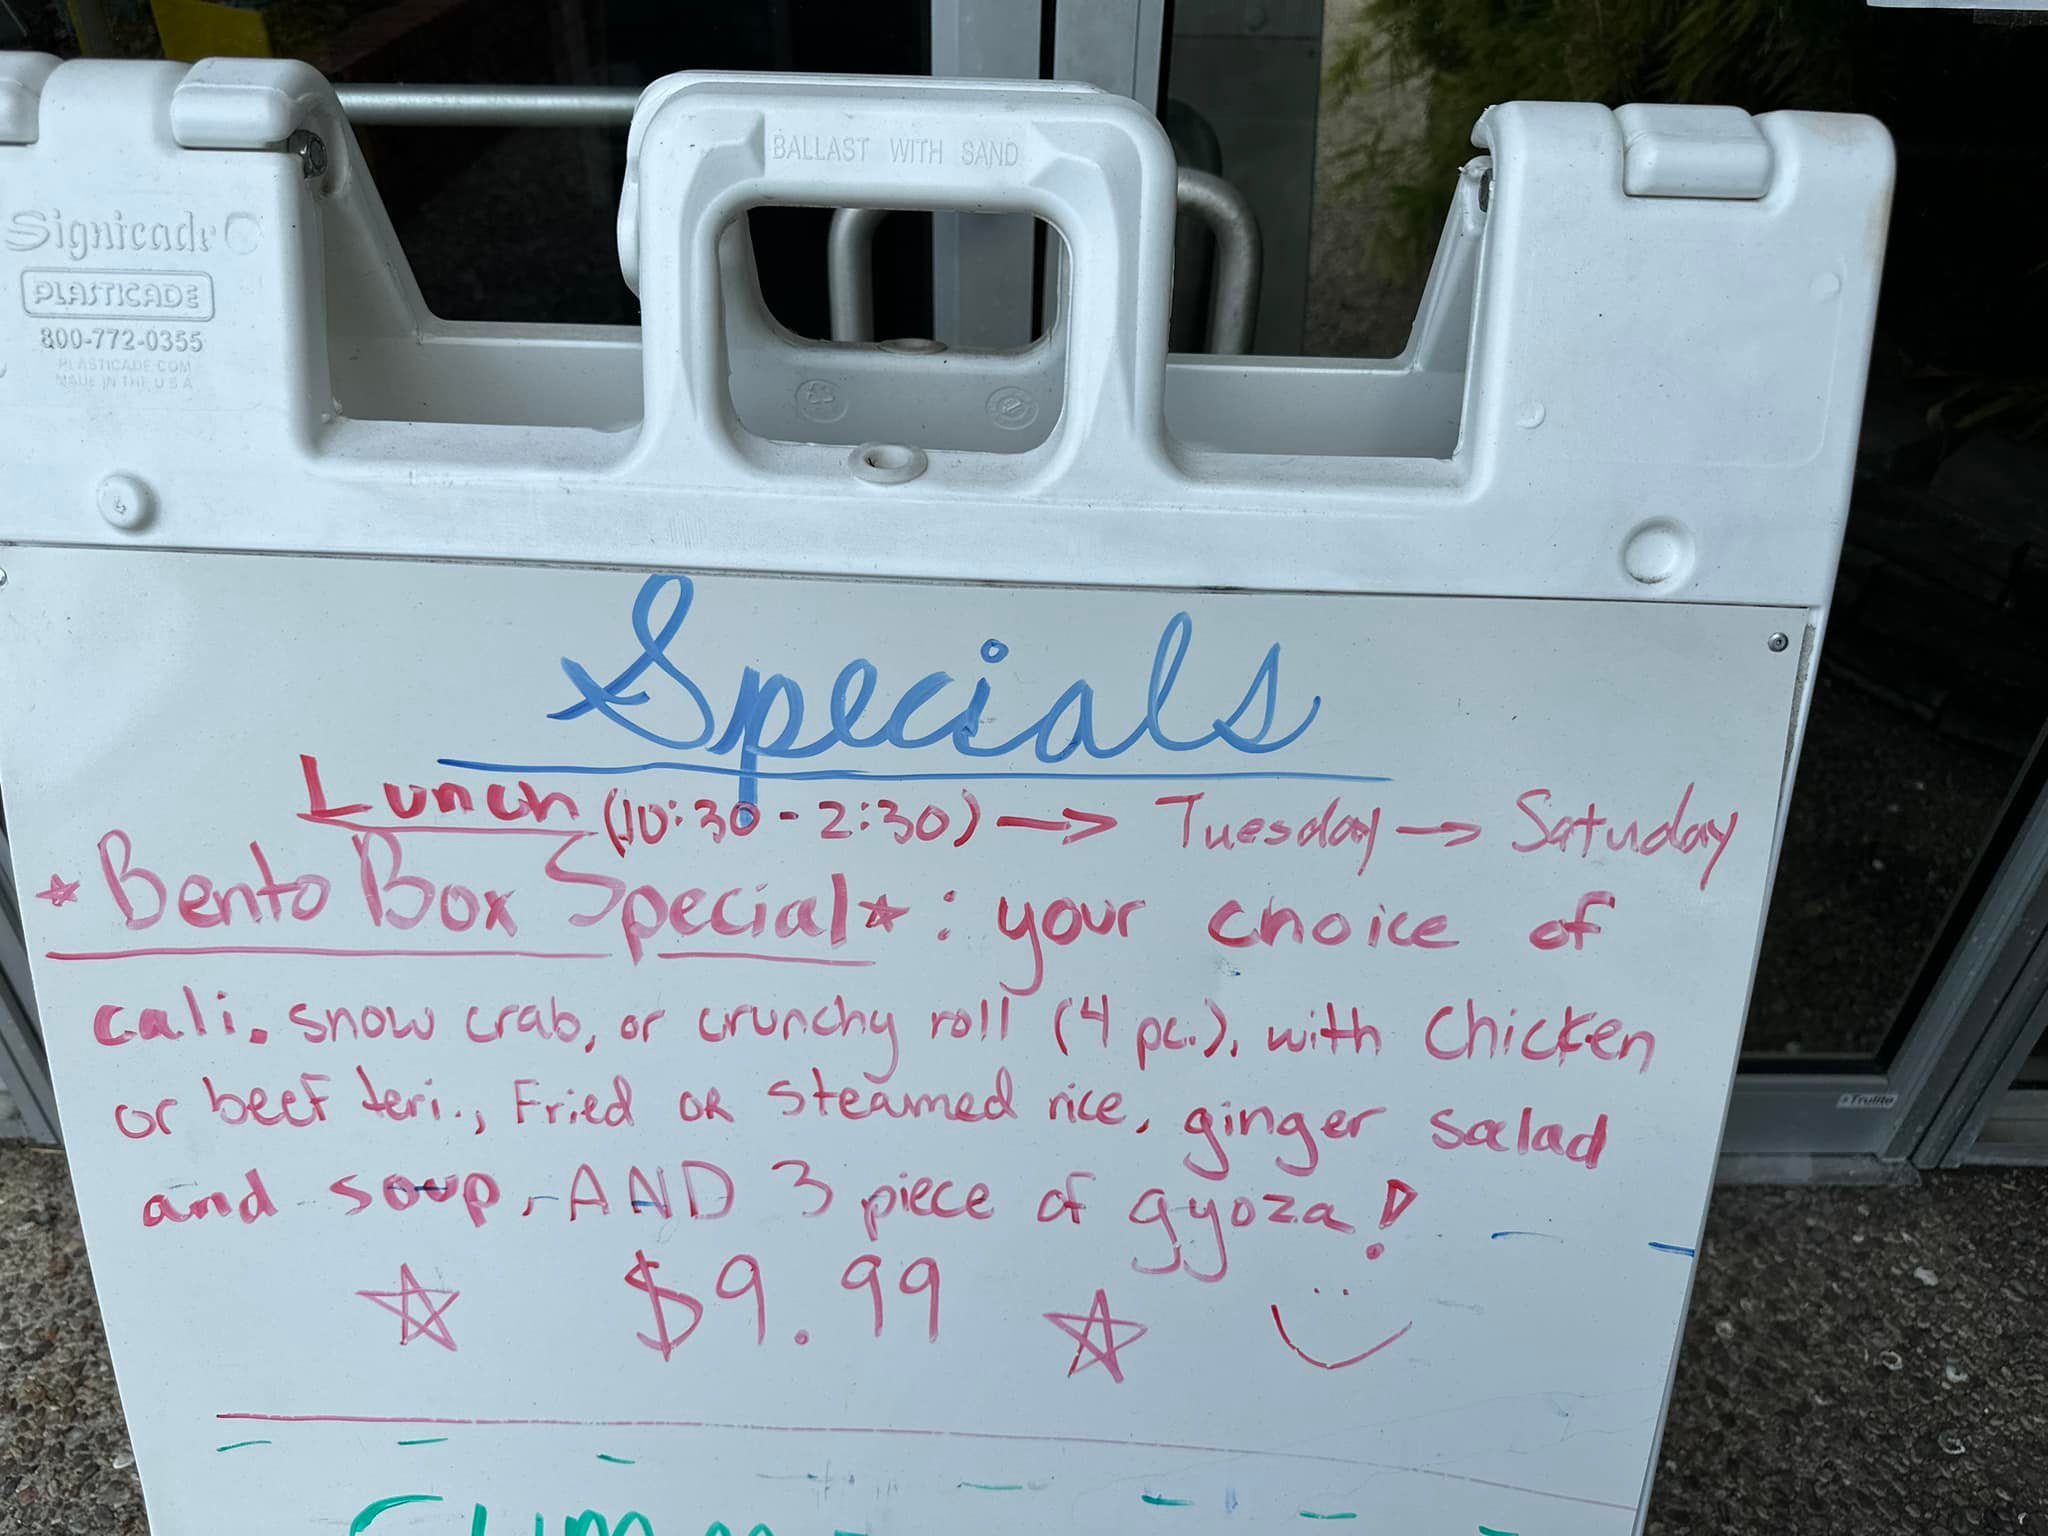 BALLAST WITH SAND
Signicade
PLASTICADE
800-772-0355
PLASTICADE.COM
MADE IN THE U S A
Specials
Lunch (10:30 - 2:30) → Tuesday → Satuday
*Bento Box Special* : your choice of
cali. snow crab, or crunchy roll (4 pc.), with Chicken
or beef teri., Fried or steamed rice, ginger salad
and soup, AND 3 piece of gyoza!
$9.99
Trulite